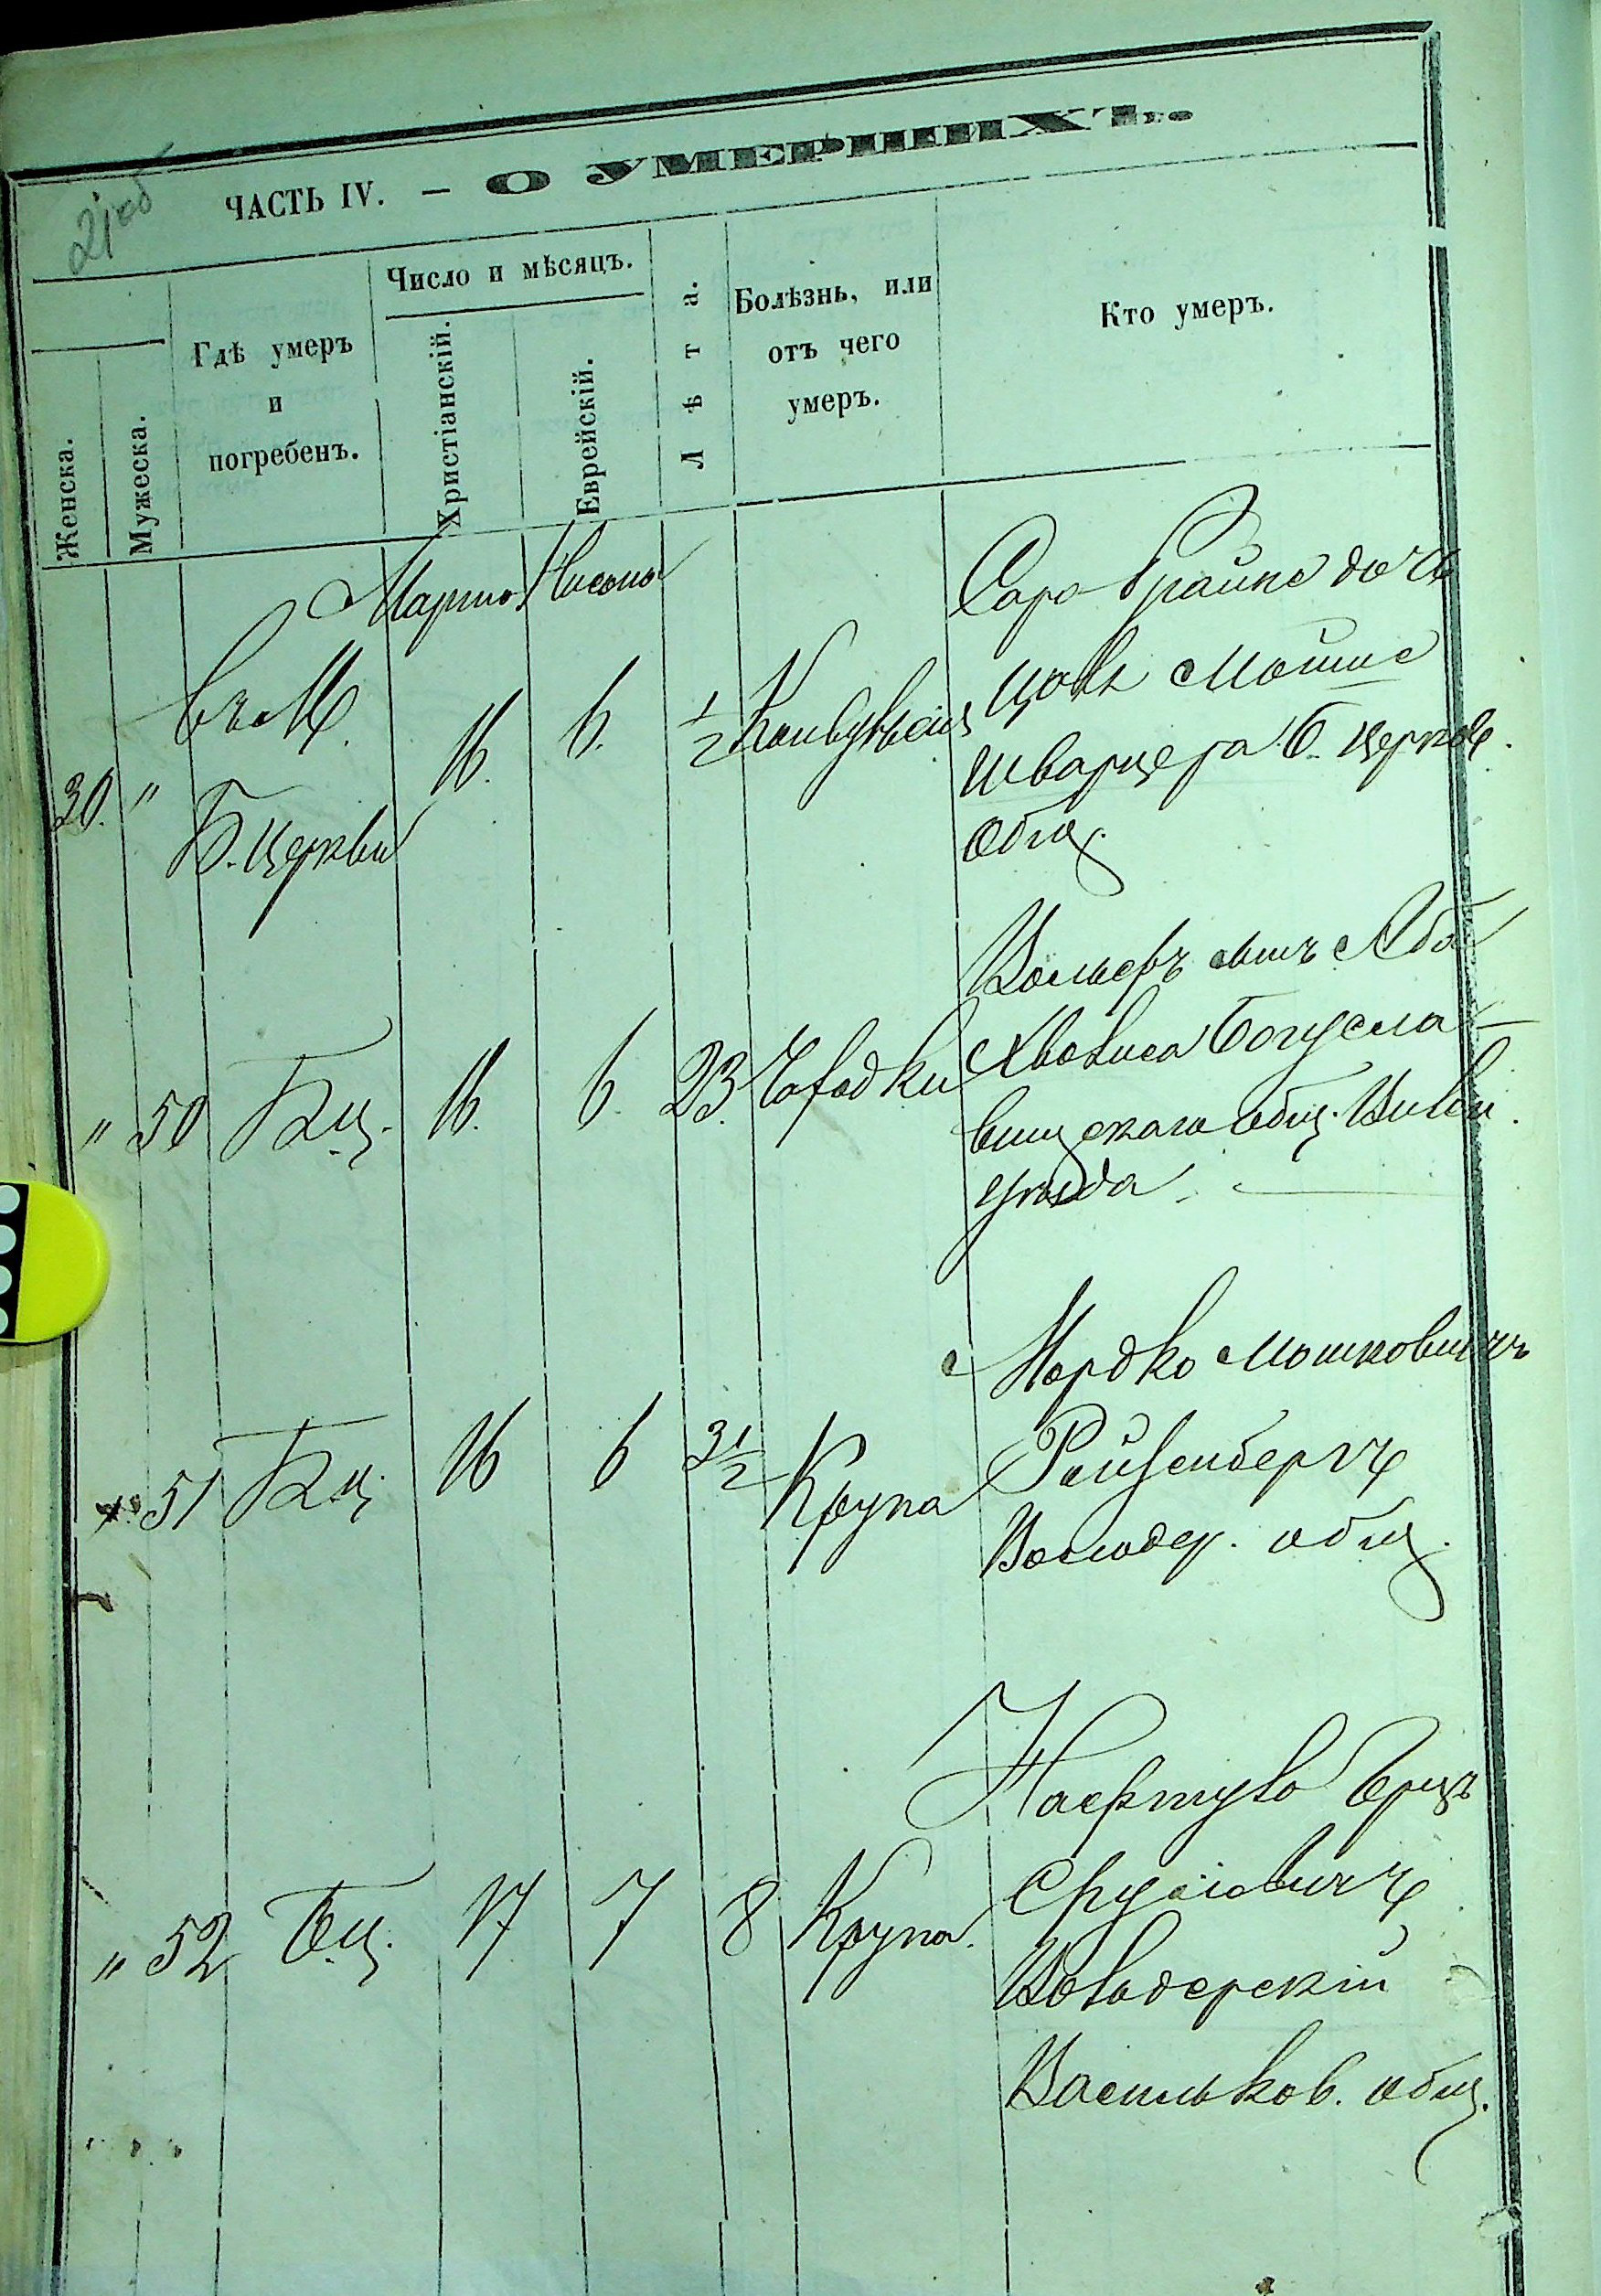 21об
ЧАСТЬ IV. — О УМЕРШИХЪ.
Женска.
Мужеска.
Гдѣ умеръ
и
погребенъ.
Число и мѣсяцъ.
Христіанскій.
Еврейскій.
Лѣта.
Болѣзнь, или
отъ чего
умеръ.
Кто умеръ.
Марта Нисона
30. "
въ М.
Б. Церкви
16. 6. 1/2
Сара дочь
Мошка
Шварцера Б. Церков.
общ.
" 50 Б.ц. 16. 6. 23. Чахотки
сынъ Аба
Богусла-
винскаго общ.
уѣзда. —
51 Б.ц. 16 6 3 1/2 Крупа
Мордко Мошковичъ
Ройзенбергъ
общ.
" 52 Б.ц. 17 7 8 Крупа.
Нафтуло Герцъ
Срулiовичъ
Володерскій
Васильков. общ.